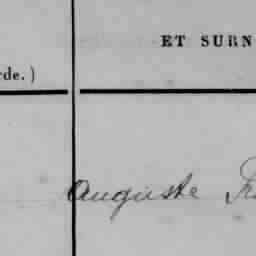 ET SURN
rde.)
Auguste